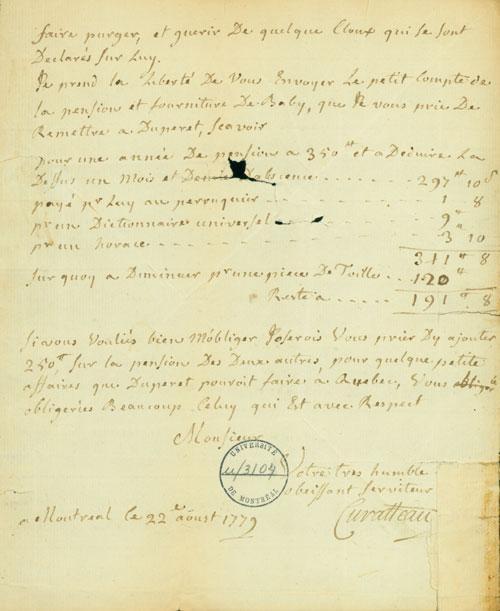 faire purger, et guerir De quelque Cloux qui se sont
Declarés sur Luy.
Je prend la Liberté De Vous Envoyer Le petit Compte de
la pension et fourniture De Baby, que Je vous prie De
Remettre a Duperet, scavoir
pour une année De pension a 350 tt et a Déduire La
Dessus un Mois et Demie D'absence - - - - 297 tt 10 s
payé pr Luy au perruquier - - - - 1 8
pr un Dictionnaire universel - - - 9 tt
pr un horace - - - - - - - - 3 10
311 tt 8
sur quoy a Diminuer pr une piece De Toille - - 120 tt
Reste a - - - - - 191 tt 8
si vous Vouliés bien M'obliger J'oserois Vous prier Dy ajouter
250 tt, sur la pension Des Deux autres, pour quelque petite
affaires que Duperet pouroit faire à Quebec, Vous
obligeriés Beaucoup Celuy qui Est avec Respect
Monsieur
UNIVERSITÉ
u/3104
DE MONTRÉAL
Votre tres humble
obeissant serviteur
a Montreal le 22e aoust 1779
Curatteau